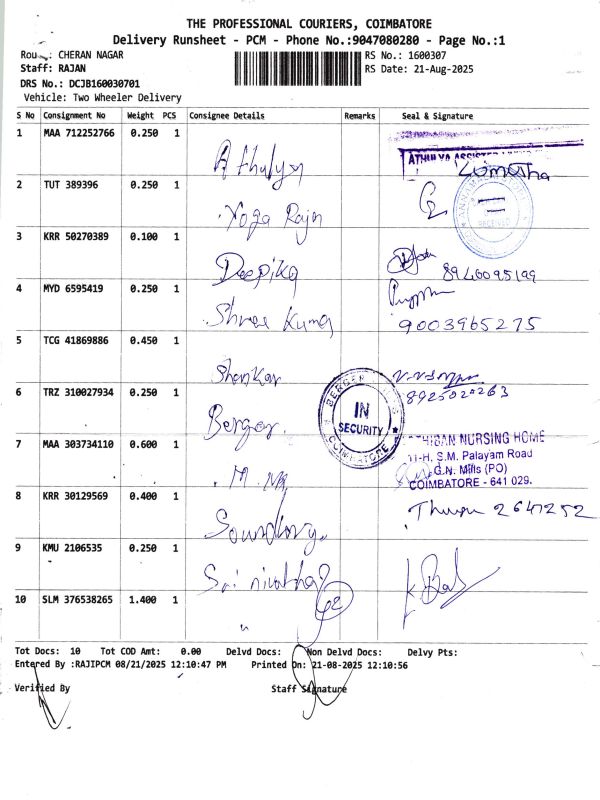 THE PROFESSIONAL COURIERS, COIMBATORE
Delivery Runsheet - PCM - Phone No.:9047080280 - Page No.:1
: CHERAN NAGAR RS No.: 1600307
Staff: RAJAN RS Date: 21-Aug-2025
DRS No.: DCJB160030701
Vehicle: Two Wheeler Delivery
S No Consignment No Weight PCS Consignee Details Remarks Seal & Signature
1 MAA 712252766 0.250 1
Athulya
2 TUT 389396 0.250 1
Yoga Rajn RECEIVED
3 KRR 50270389 0.100 1
Deepika 8940095199
4 MYD 6595419 0.250 1
Shree Kumar 9003965275
5 TCG 41869886 0.450 1
Shankar
6 TRZ 310027934 0.250 1 8925020263
Berger BERGER IN SECURITY COIMBATORE
7 MAA 303734110 0.600 1 NURSING HOME
S.M. Palayam Road
M. G.N. Mills (PO)
COIMBATORE - 641 029.
8 KRR 30129569 0.400 1
2647252
9 KMU 2106535 0.250 1
10 SLM 376538265 1.400 1
Tot Docs: 10 Tot COD Amt: 0.00 Delvd Docs: Non Delvd Docs: Delvy Pts:
Entered By :RAJIPCM 08/21/2025 12:10:47 PM Printed On: 21-08-2025 12:10:56
Verified By Staff Signature